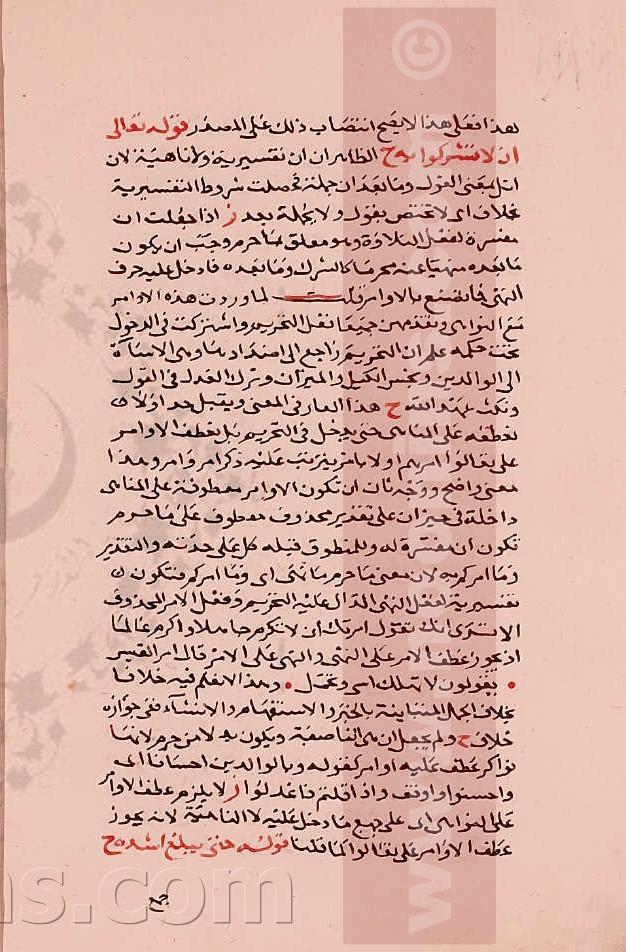 بهذا فعلى هذا لا يصح انتصاب ذلك على المصدر قوله تعالى
ان لا تشركوا به ح الظاهر ان ان تفسيرية ولا ناهية لان
اتل بمعنى القول وما بعد ان جملة فحصلت شروط التفسيرية
بخلاف اى لا تختص بقول ولا بجملة بعد ز اذا جعلت ان
مفسرة لفعل التلاوة وهو معلق بما حرم وجب ان يكون
ما بعده منهيا عنه محرما كالشرك وما بعده فادخل عليه حرف
النهى فما تصنع بالاوامر قلت لما وردت هذه الاوامر
مع النواهى وتقدمهن جميعا فعل التحريم واشتركت فى الدخول
تحت حكمه علم ان التحريم راجع الى اضدادها وهى الاساءة
الى الوالدين وبخس الكيل والميزان وترك العدل فى القول
ونكث عهد الله ح هذا فى المعنى جدا اولا
نعطفه على المناهى حتى يدخل فى التحريم بل نعطف الاوامر
على تعالوا امرهم اولا بامر يترتب عليه ذكر امر وامر وهذا
معنى واضح ووجه ثان ان تكون الاوامر معطوفة على المناهى
داخلة فى حيز ان على تقدير محذوف معطوف على ما حرم
تكون ان مفسرة له وللمنطوق قبله كل على حدته والتقدير
وما امركم به لان معنى ما حرم ما نهى اى وما امركم فتكون
تفسيرية لفعل النهى الدال عليه التحريم وفعل الامر المحذوف
الا ترى انك تقول امرتك ان لا تكرم جاهلا واكرم عالما
اذ يجوز عطف الامر على النهى والنهى على الامر قال امرؤ القيس
يقولون لا تهلك اسى وتجمل وهذا لا نعلم فيه خلافا
بخلاف الجمل المتباينة بالخبر والاستفهام والانشاء ففى جوازه
خلاف ح ولم يجعل ان هى الناصبة ويكون بدلا من حرم لانها
نواه عطف عليه اوامر كقوله وبالوالدين احسانا اى
واحسنوا واوفوا واذا قلتم فاعدلوا ز لا يلزم عطف الاوامر
على النواهى اى على جميع ما دخل عليه لا الناهية لانه يجوز
عطف الاوامر على تعالوا كما قلنا قوله حتى يبلغ اشده ح
جمع
© www.
ns.com